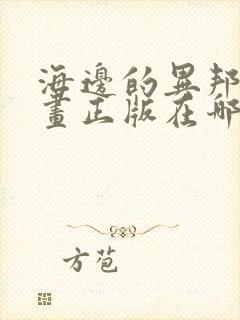 海邊的異邦
畫正版在哪
方苞